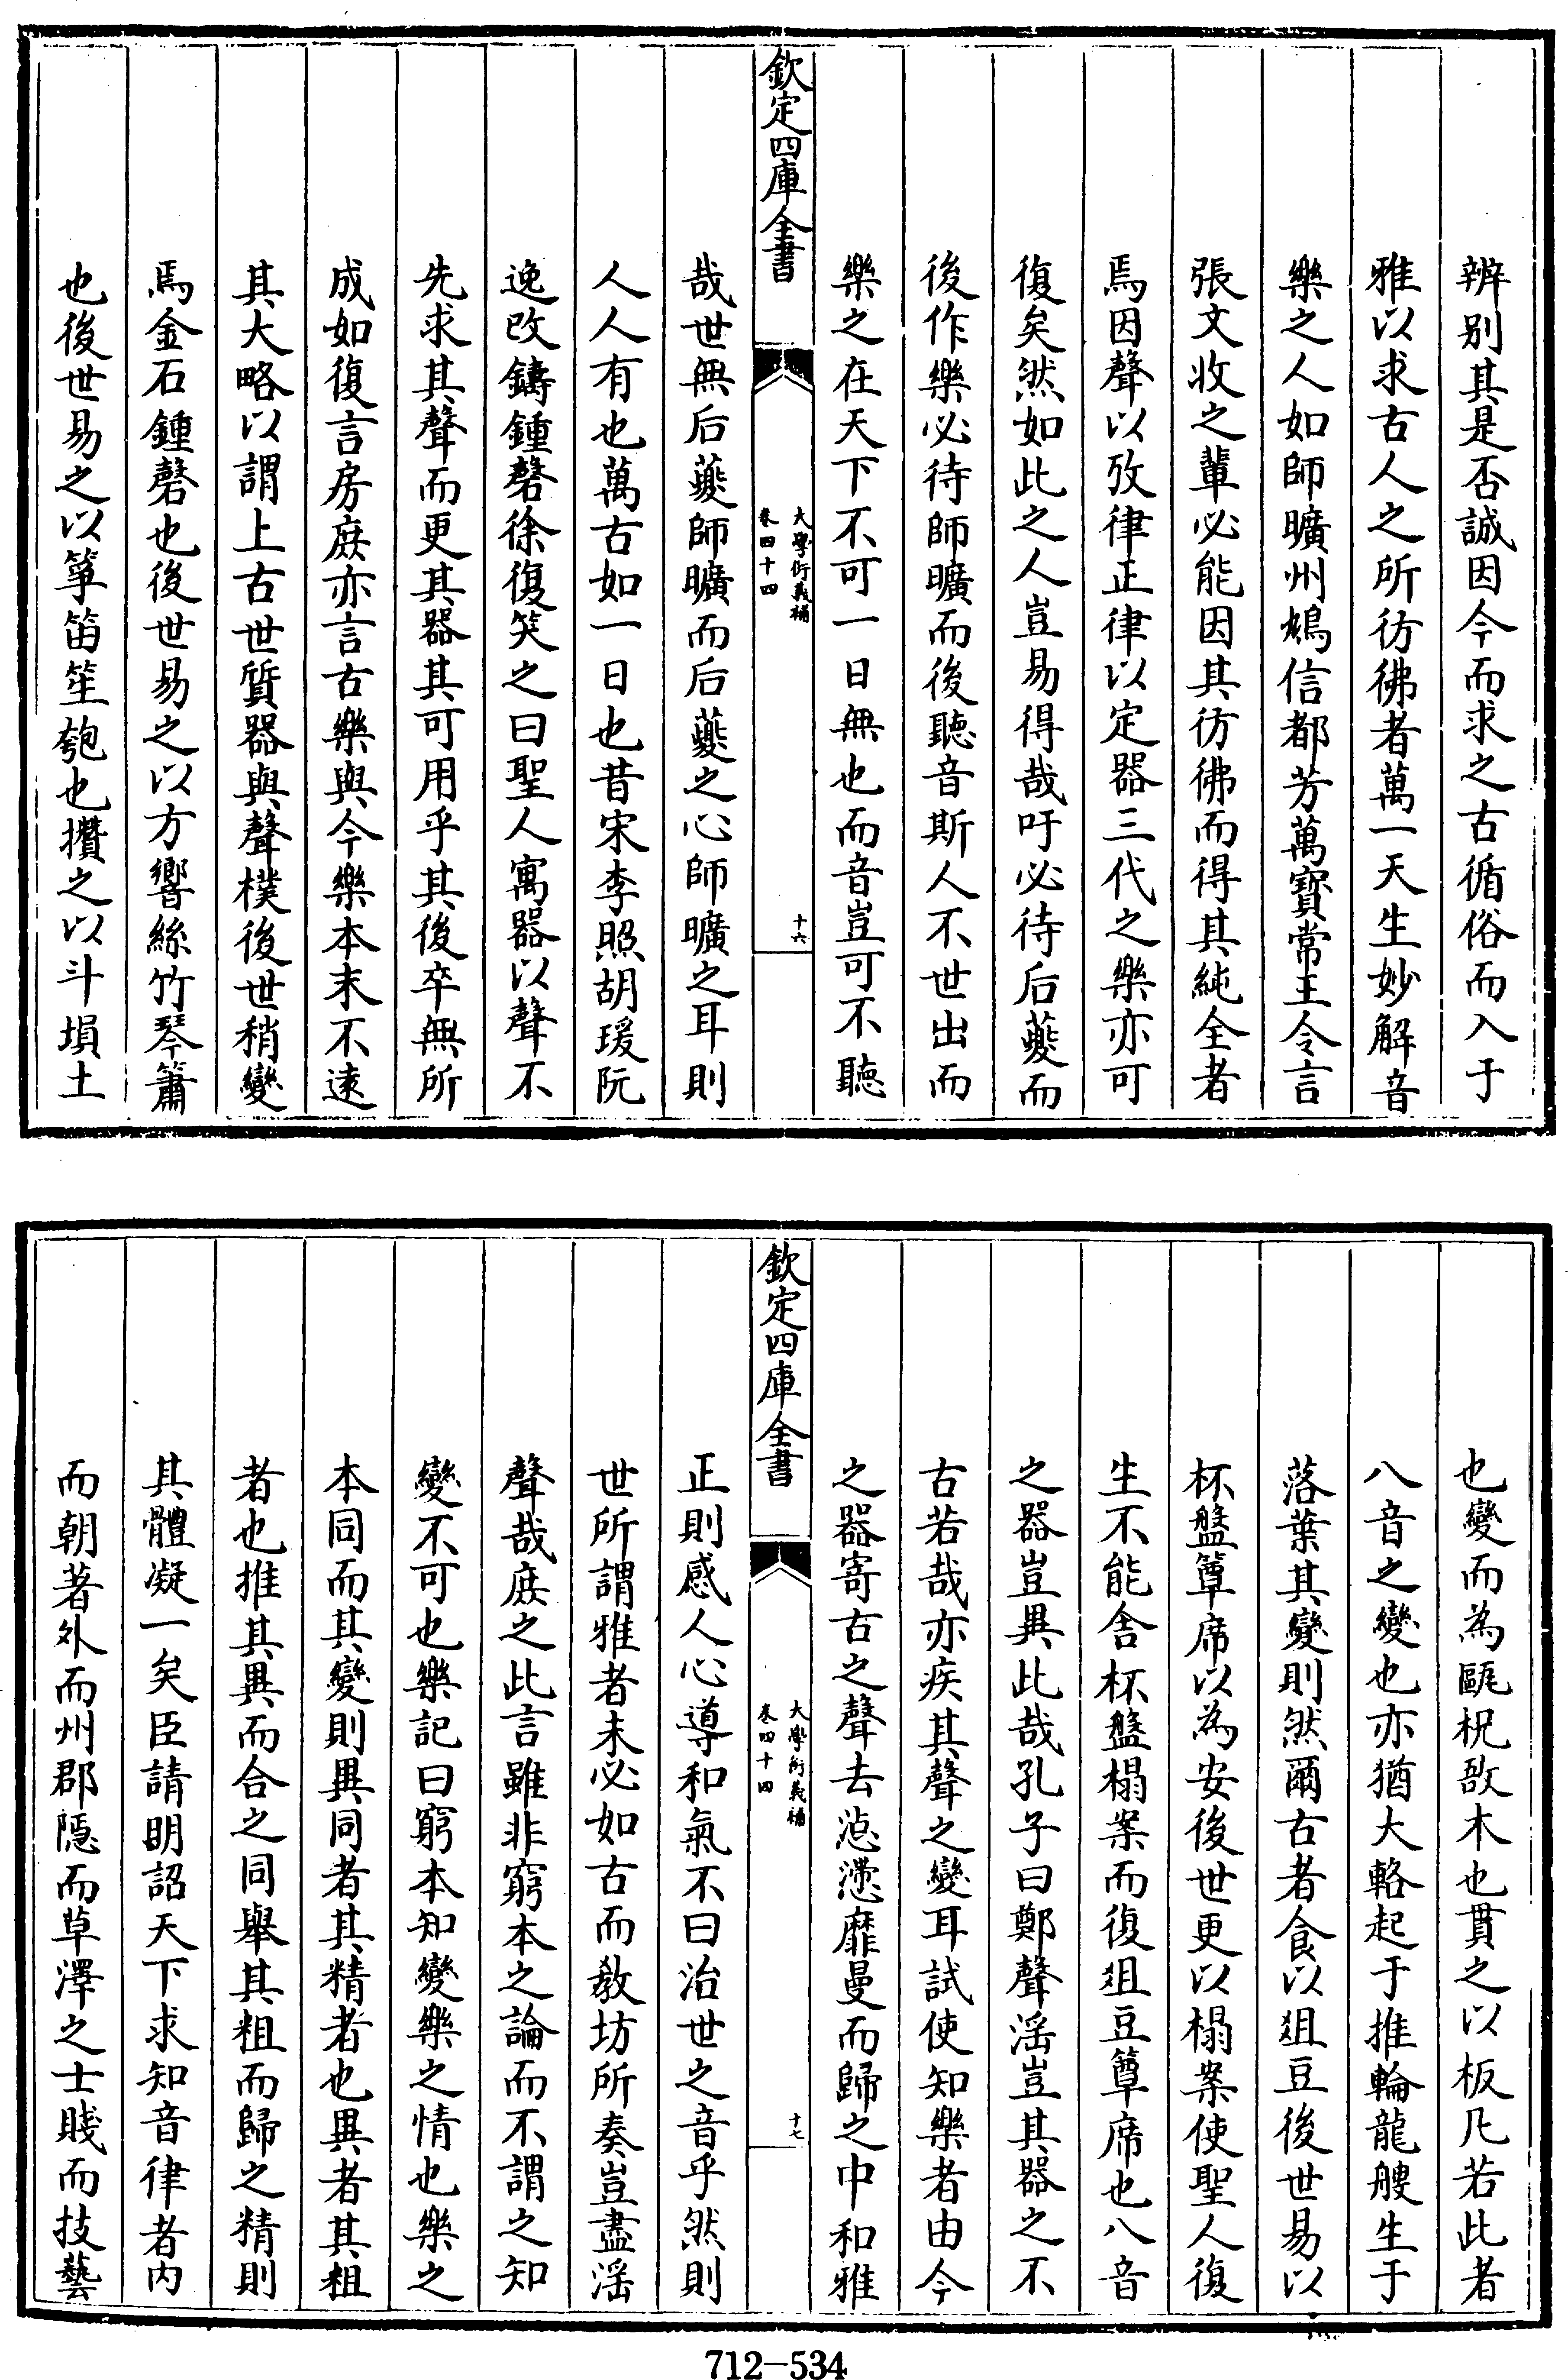 辨别其是否誠因今而求之古循俗而入于
雅以求古人之所彷彿者萬一天生妙解音
樂之人如師曠州鳩信都芳萬寶常王令言
張文收之輩必能因其彷彿而得其純全者
焉因聲以攷律正律以定器三代之樂亦可
復矣然如此之人豈易得哉吁必待后夔而
後作樂必待師曠而後聽音斯人不世出而
樂之在天下不可一日無也而音豈可不聽
欽定四庫全書
大學衍義補
卷四十四
十六
哉世無后夔師曠而后夔之心師曠之耳則
人人有也萬古如一日也昔宋李照胡瑗阮
逸改鑄鍾磬徐復笑之曰聖人寓器以聲不
先求其聲而更其器其可用乎其後卒無所
成如復言房庶亦言古樂與今樂本末不逺
其大略以謂上古世質器與聲樸後世稍變
焉金石鍾磬也後世易之以方響絲竹琴簫
也後世易之以箏笛笙匏也攢之以斗塤土
也變而為甌柷敔木也貫之以板凡若此者
八音之變也亦猶大輅起于推輪龍艘生于
落葉其變則然爾古者食以俎豆後世易以
杯盤簟席以為安後世更以榻案使聖人復
生不能舍杯盤榻案而復俎豆簟席也八音
之器豈異此哉孔子曰鄭聲淫豈其器之不
古若哉亦疾其聲之變耳試使知樂者由今
之器寄古之聲去惉懘靡曼而歸之中和雅
欽定四庫全書
大學衍義補
卷四十四
十七
正則感人心導和氣不曰治世之音乎然則
世所謂雅者未必如古而教坊所奏豈盡淫
聲哉庶之此言雖非窮本之論而不謂之知
變不可也樂記曰窮本知變樂之情也樂之
本同而其變則異同者其精者也異者其粗
者也推其異而合之同舉其粗而歸之精則
其體凝一矣臣請明詔天下求知音律者内
而朝著外而州郡隱而草澤之士賤而技藝
712-534